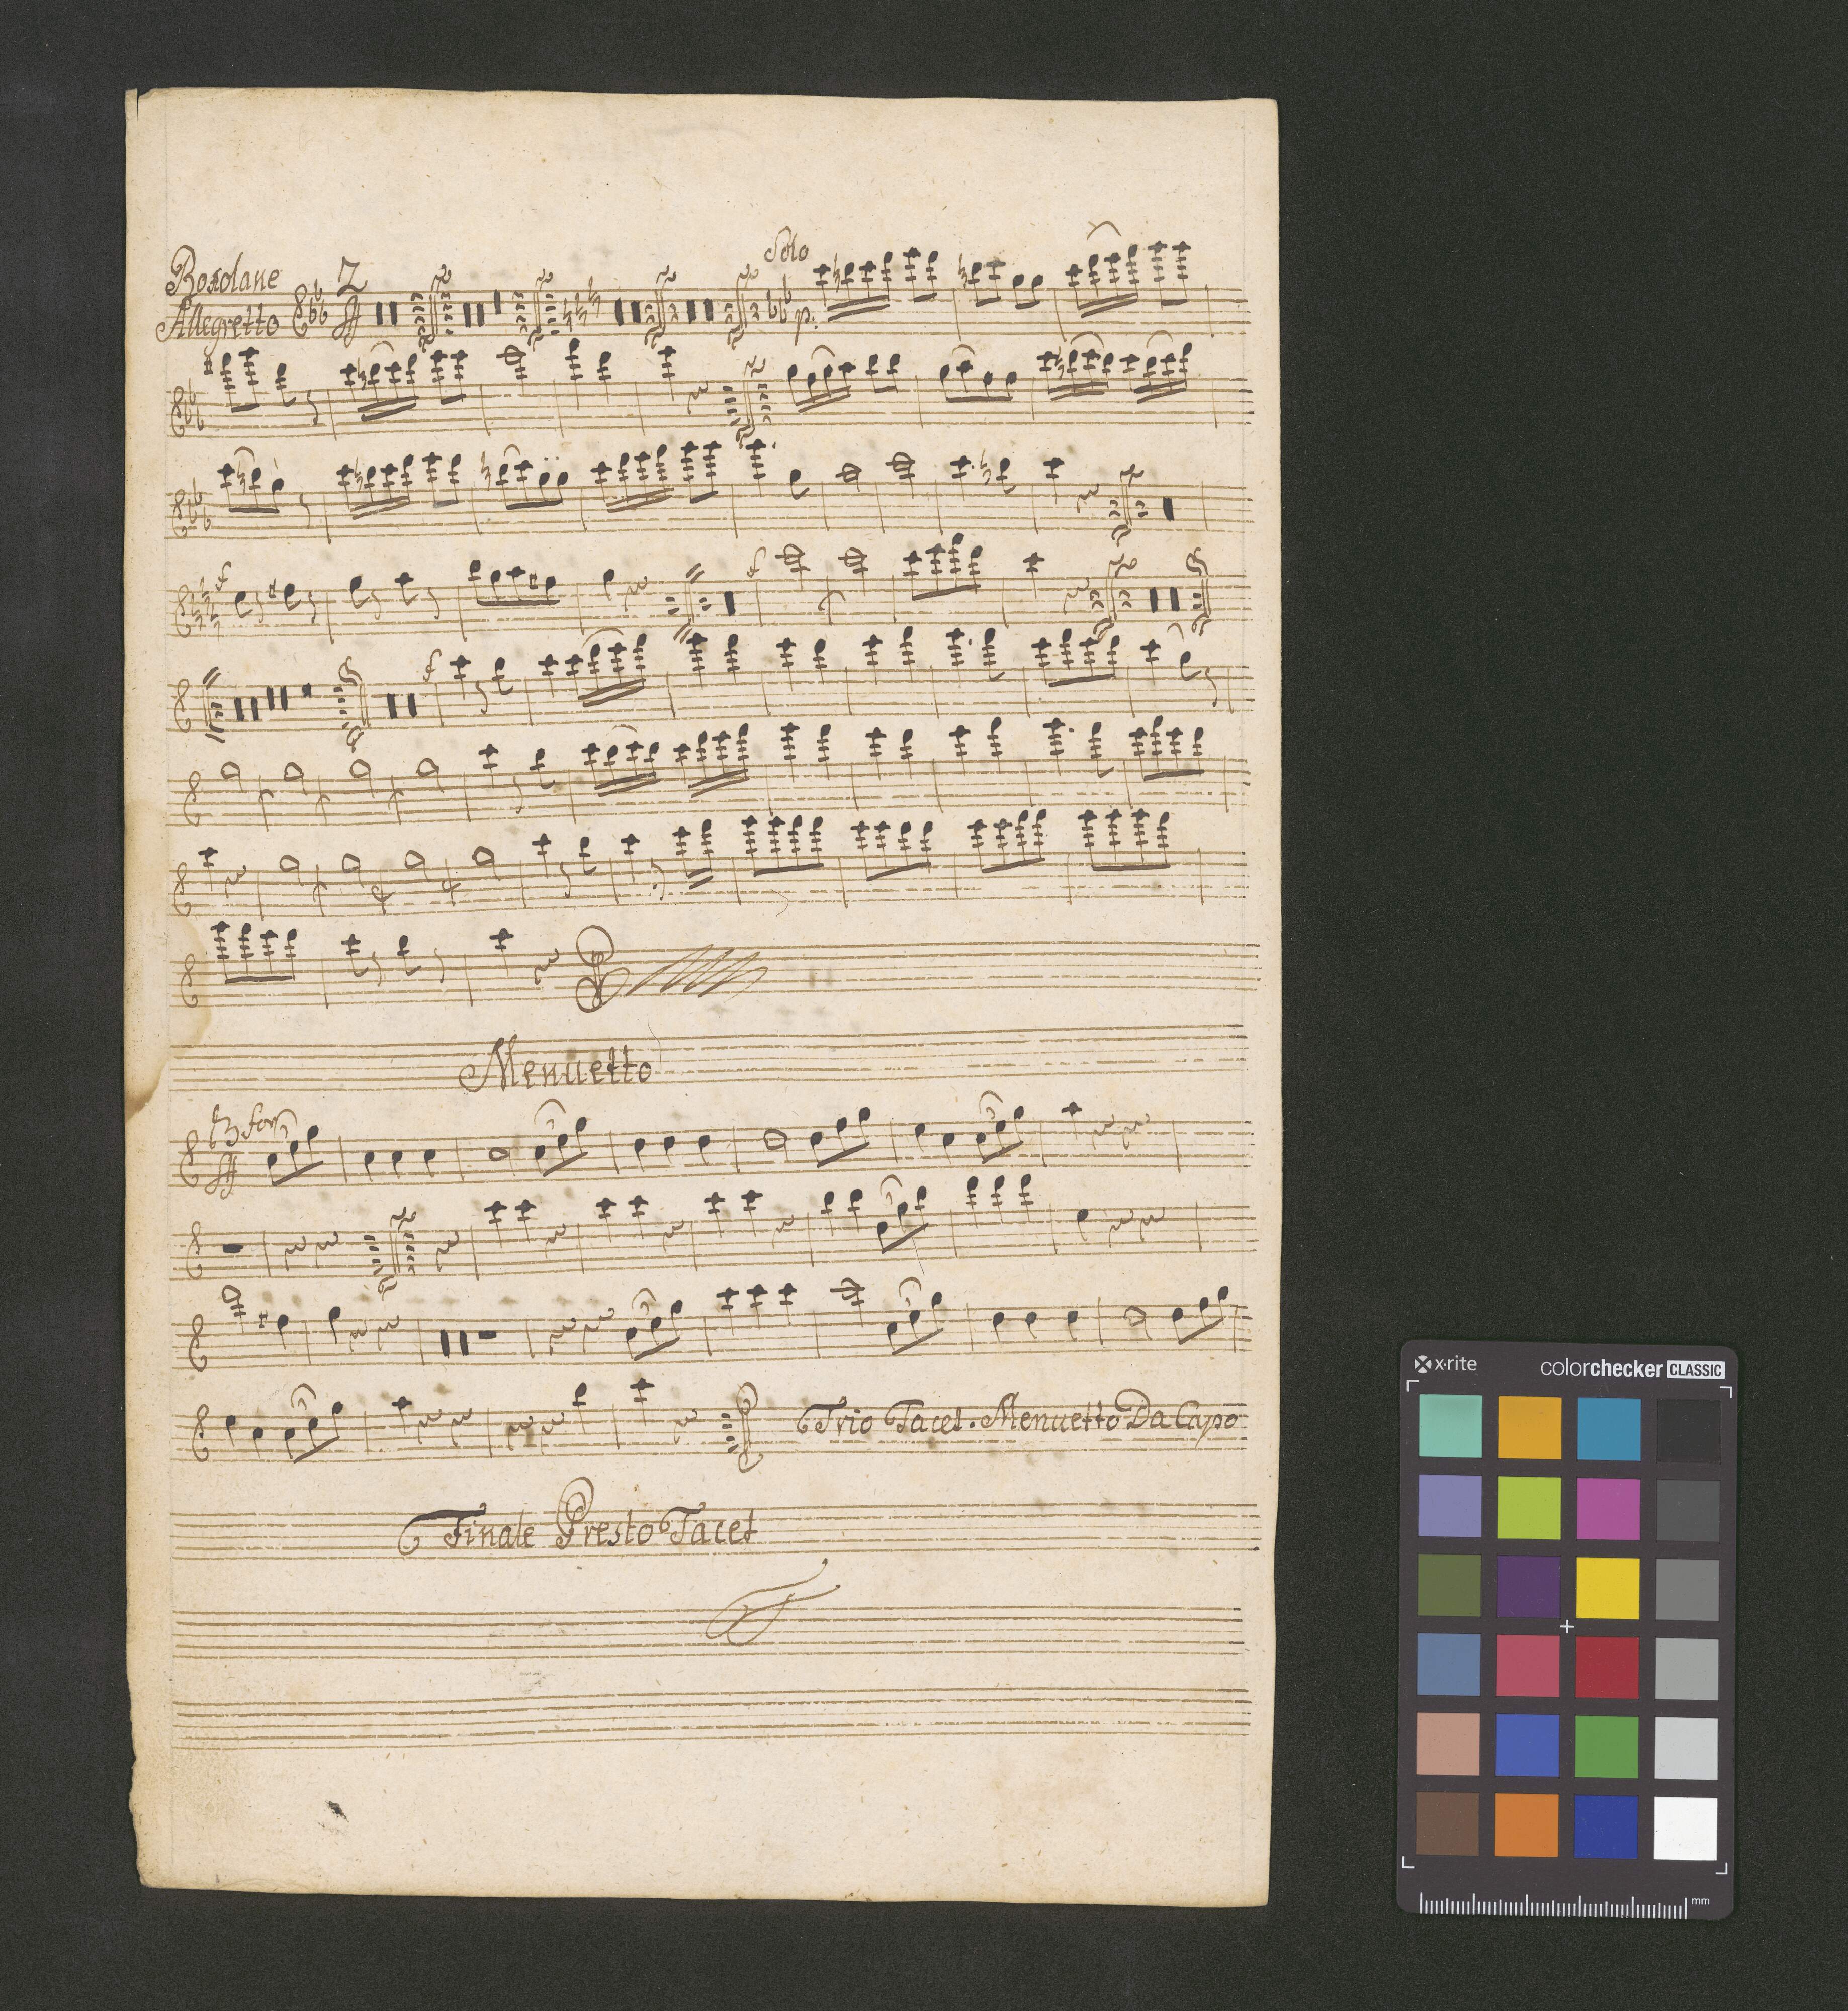 Solo
Roxolane
Allegretto 2 p:
f f
f
Menuetto
3 for
3 3 3
3
3 3
3 Trio Tacet. Menuetto Da Capo
Finale Presto Tacet
x-rite colorchecker CLASSIC
mm